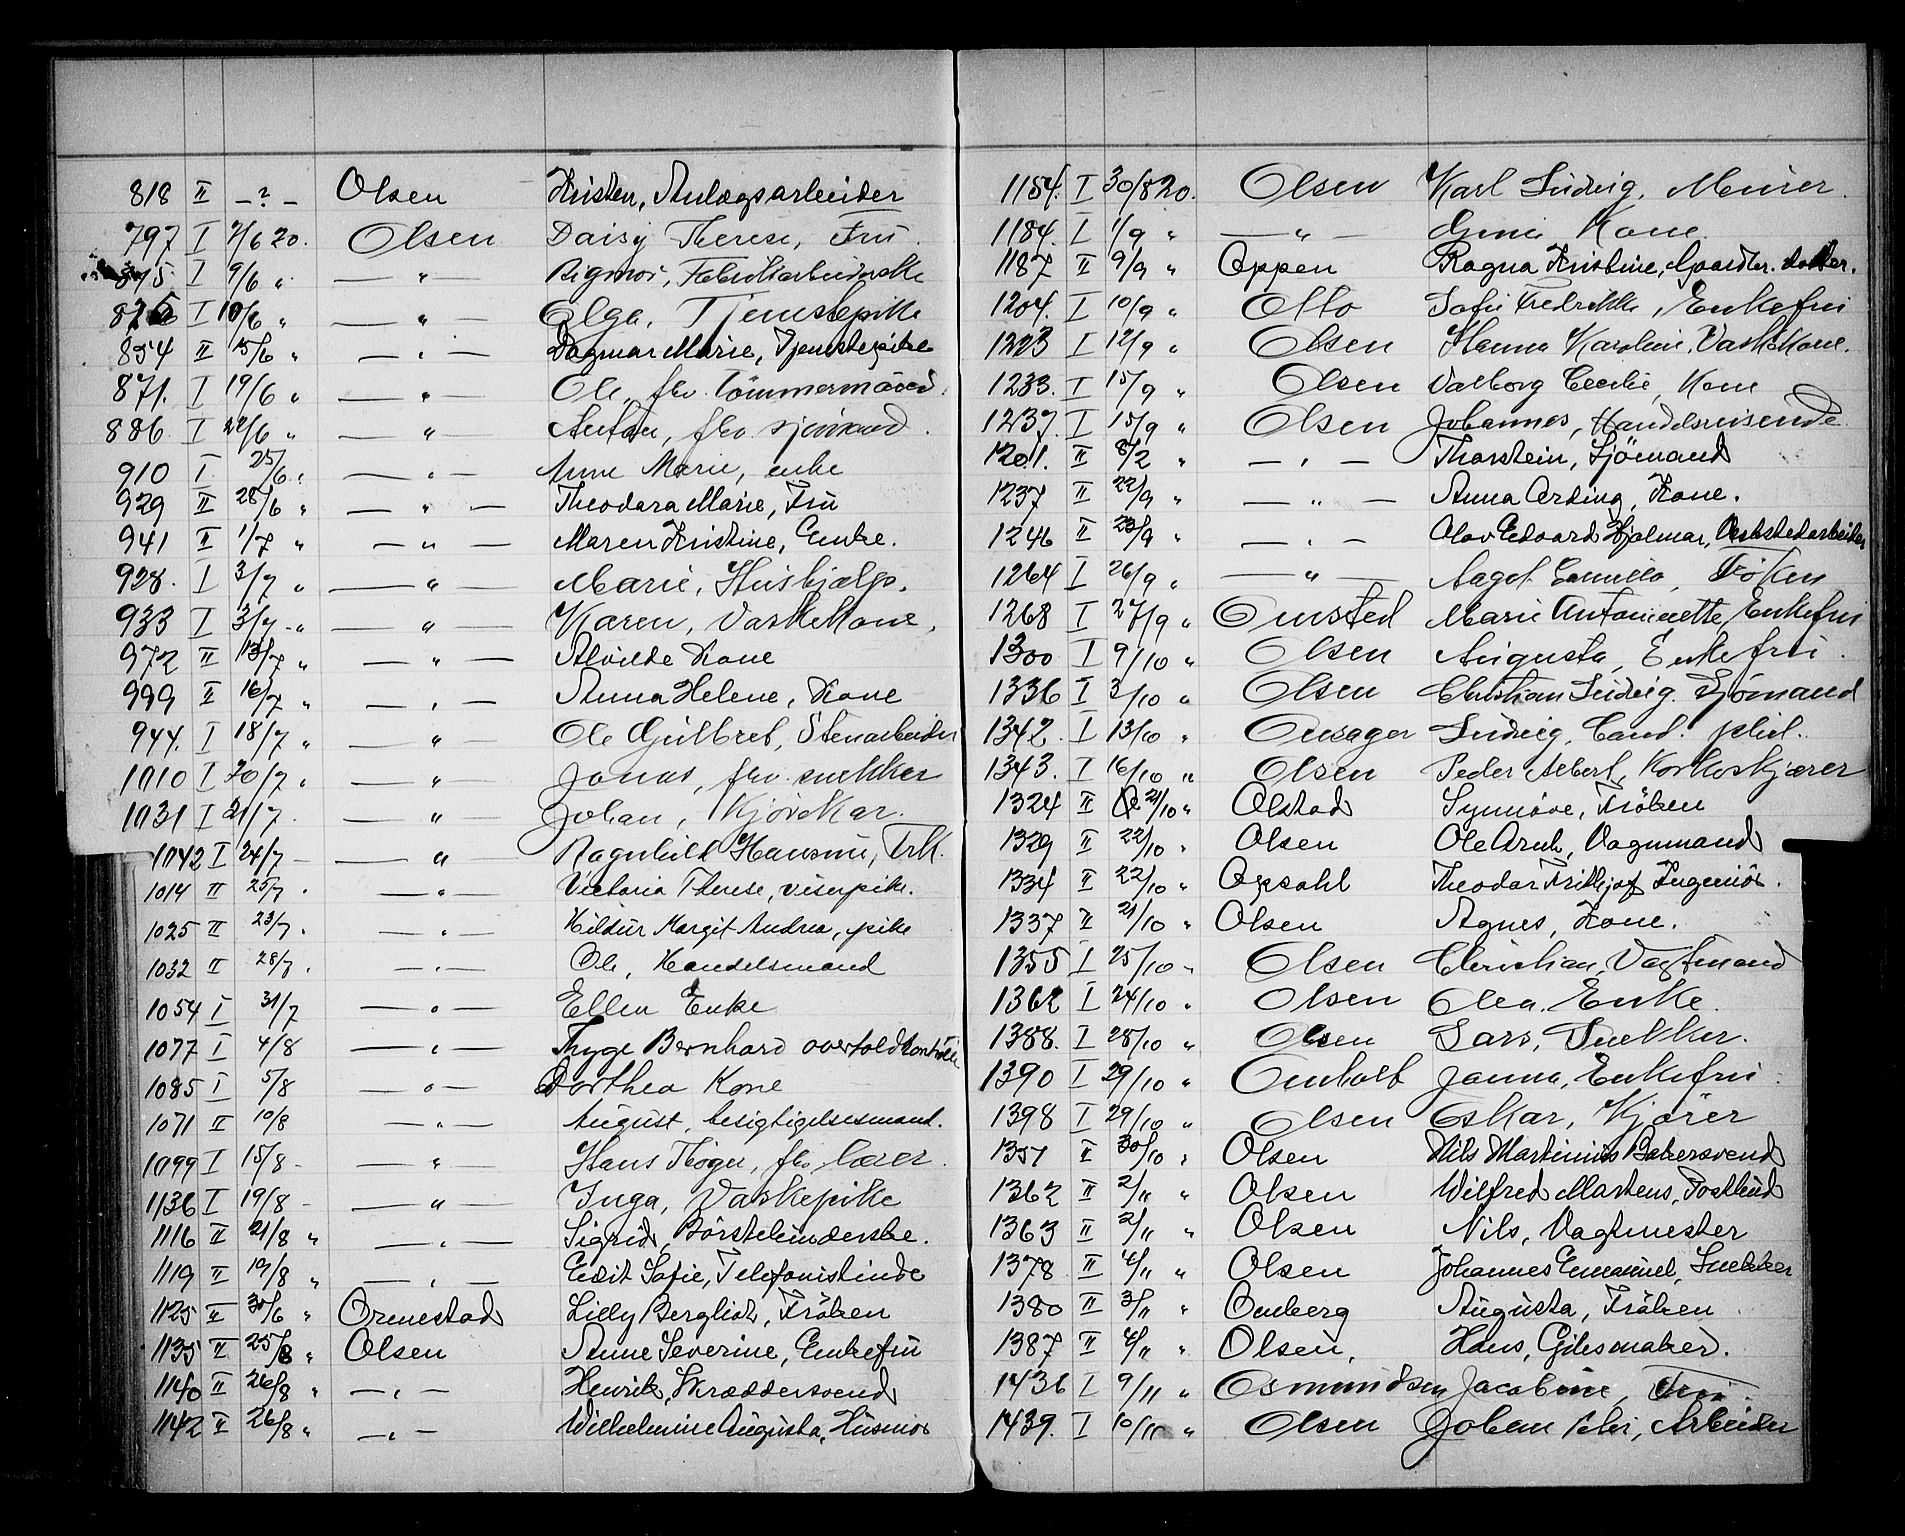 818 II - ? - Olsen Kristen, Anlægsarbeider
797 I 7/6 20. Olsen Daisy Therese, Fru.
I 9/6 " — " Rigmor, Fabrikarbeiderske
I 10/6 " — " — Olga, Tjenestepike
854 II 15/6 " — " — Dagmar Marie, Tjenestepike
871. I 19/6 " — " — Ole, fhv. tömmermand.
886. I 22/6 " — " — Anton, fhv. sjömand.
910 I 25/6 " — " — Anne Marie, enke
929 II 28/6 " — " — Theodora Marie, Fru
941 II 1/7 " — " — Maren Kristine, Enke.
928. I 3/7 " — " — Marie, Hushjælp.
933 I 3/7 - " — " — Karen, Vaskekone,
972 II 13/7 " — " — Alvilde Kone
999 II 16/7 " — " — Anna Helene, Kone
944. I 18/7 " — " — Ole Gulbret, Stenarbeider
1010 I 20/7 " — " — Jonas, fhv. snekker
1031 I 21/7. — " — Johan, Kjörekar.
1042 I 24/7 - — " — Ragnhild Hansine, Frk.
1014 II 25/7. — " — Victoria Therese, viserpike.
1025 II 23/7. — " — Hildur Margit Andrea, pike
1032 II 28/7. — " — Ole, Handelsmand
1054 I 31/7 — " — Ellen Enke
1077 I 4/8 — " — Thyge Bernhard overtoldkontrollør
1085 I 5/8 — " — Dorthea Kone
1071 II 10/8 — " — August, besigtigelsesmand.
1099 I 15/8 - — " — Hans Höger, fhv. lærer.
1136 I 19/8 - — " — Inga, Vaskepike
1116 II 21/8 " — " — Sigrid, Börstebinderske.
1119 II 19/8 " — " — Edit Sofie, Telefonistinde
1125 II 30/6 " Ormestad Lilly Bergliot, Fröken
1135 II 25/8 " Olsen Anne Severine, Enkefru
1140 II 26/8 " — " — Henrik, Skræddersvend
1142 II 26/8 " — " — Wilhelmine Augusta, Husmor
1154. I 30/8 20. Olsen Karl Ludvig, Murer.
1184. I 1/9 " — " — Kone.
1187 II 9/9 " Oppen Ragna Kristine, Gaardbr. datter.
1204. I 10/9 " Otto Sofie Fredrikke, Enkefru
1223 I 12/9 " Olsen Hanna Karoline, Vaskekone.
1233. I 15/9 " Olsen Valborg Cecilie, Kone
1237. I 15/9 " Olsen Johannes, Handelsreisende.
1201. II 8/2 " — " — Thorstein, Sjömand
1237 II 22/9 " — " — Anna Arding, Kone.
1246 II 23/9 " — " — Olav Edvard Hjalmar, Verkstedarbeider
1264 I 26/9 " — " — Aagot Camilla, Fröken
1268 I 27/9 " Omsted Marie Antoinette, Enkefru
1300 I 9/10 " Olsen Augusta, Enkefru.
1336 I 3/10 " Olsen Christian Ludvig. Sjømand
1342. I 13/10 " Onsager Ludvig, Cand. phil.
1343. I 16/10 " Olsen Peder Albert, Korkeskjærer
1324 II 21/10 " Olstad Synnöve, Fröken
1329 II 22/10 " Olsen Ole Arnt, Vognmand
1334 II 22/10 " Opsahl Theodor Frithjof Ingeniör.
1337 II 21/10 " Olsen Agnes, Kone.
1355 I 25/10 " Olsen Christian, Vagtmand
1362 I 24/10 " Olsen Olea. Enke.
1388. I 28/10 " Olsen Lars, Snekker.
1390 I 29/10 " Omholt Janna, Enkefru
1398 I 29/10 " Olsen Oskar, Kjörer
1351 II 30/10 " Olsen Nils Martinius Bakersvend
1362 II 2/11 " Olsen Wilfred Martens, Postbud
1363 II 2/11 " Olsen Nils, Vagtmester
1378 II 4/11 " Olsen Johannes Emanuel, Snekker
1380 II 3/11 " Omberg Augusta, Fröken
1387 II 4/11 " Olsen, Hans, Gipsmaker.
1436 I 9/11 " Osmundsen Jacobine, Fru.
1439. I 10/11 " Olsen Johan Peter, Arbeider